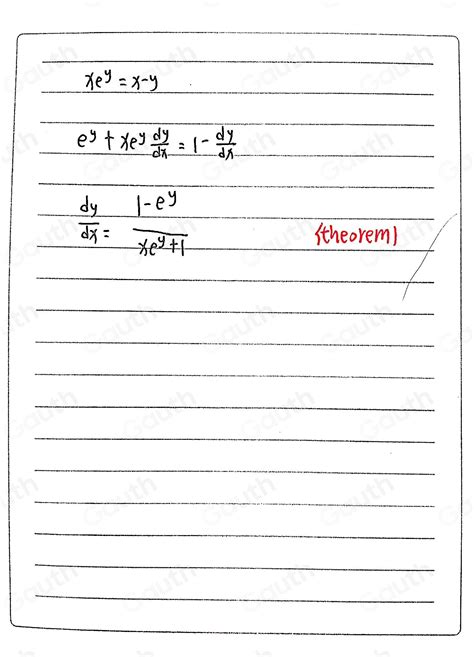 xe^y = x-y
e^y + xe^y dy/dx = 1 - dy/dx
dy/dx = (1-e^y)/(xe^y+1) {theorem}
Gauth